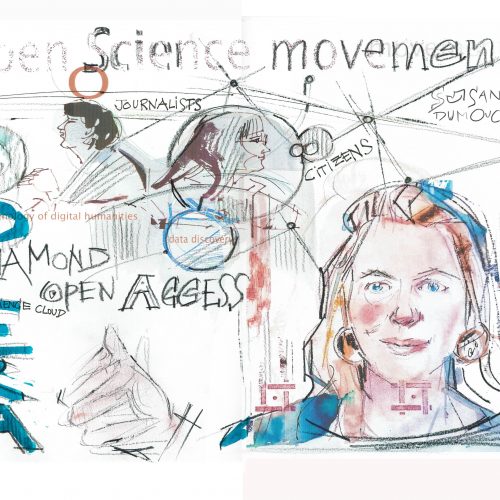 pen Science movemen
SUSAN
DUMOUC
JOURNALISTS
CITIZENS
nology of digital humanities
data discovery
IAMOND
OPEN ACCESS
ENCE CLOUD